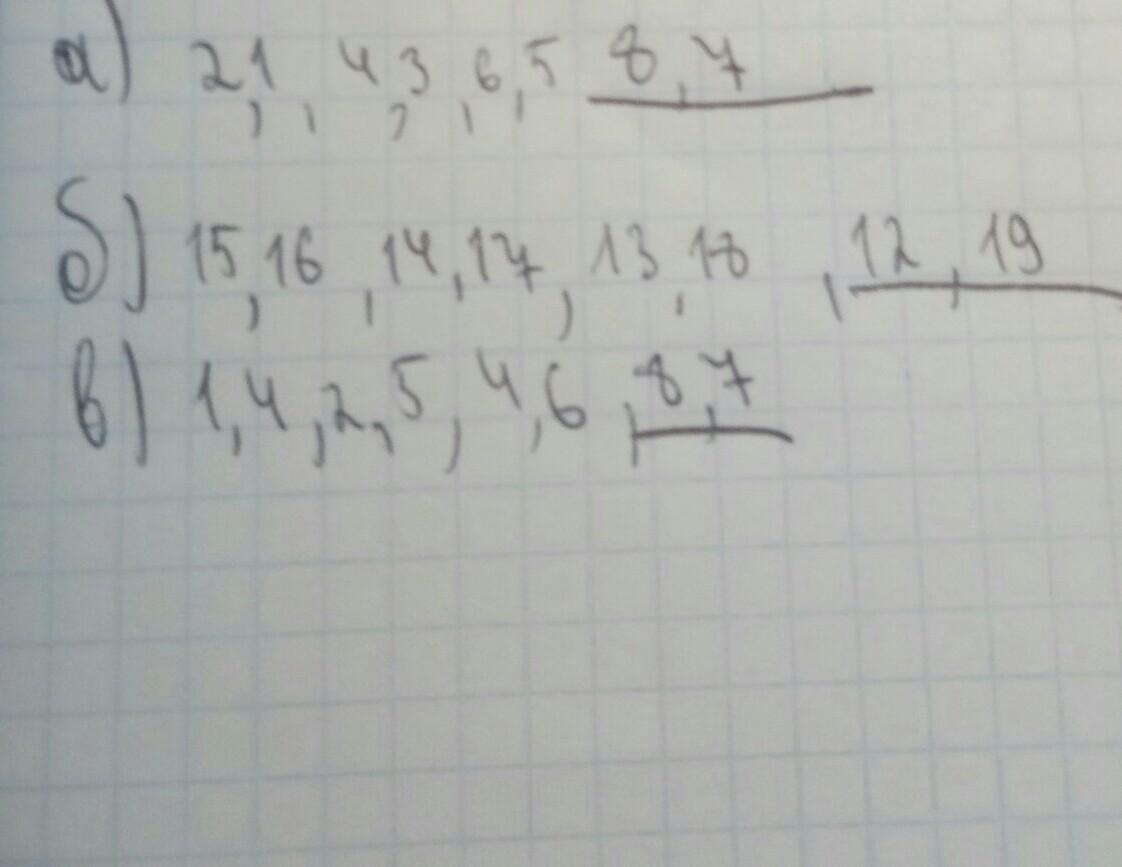 а) 2,1, 4,3,6,5 8,7
б) 15,16,14,17,13,18,12,19
в) 1,4,2,5,4,6,8,7